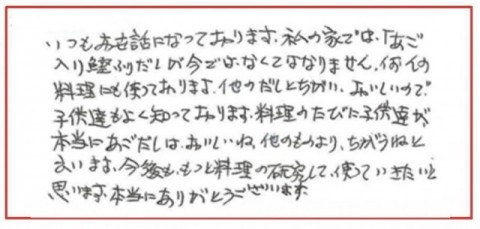 いつもお世話になっております。私の家では、「あご
入り鰹ふりだし」が今ではなくてはなりません。何んの
料理にも使っております。他のだしとちがい、おいしいので
子供達もよく知っております。料理のたびに子供達が、
本当にあごだしは、おいしいね、他のものより、ちがうねと
言います。今後も、もっと料理の研究して、使っていきたいと
思います。本当にありがとうございます。